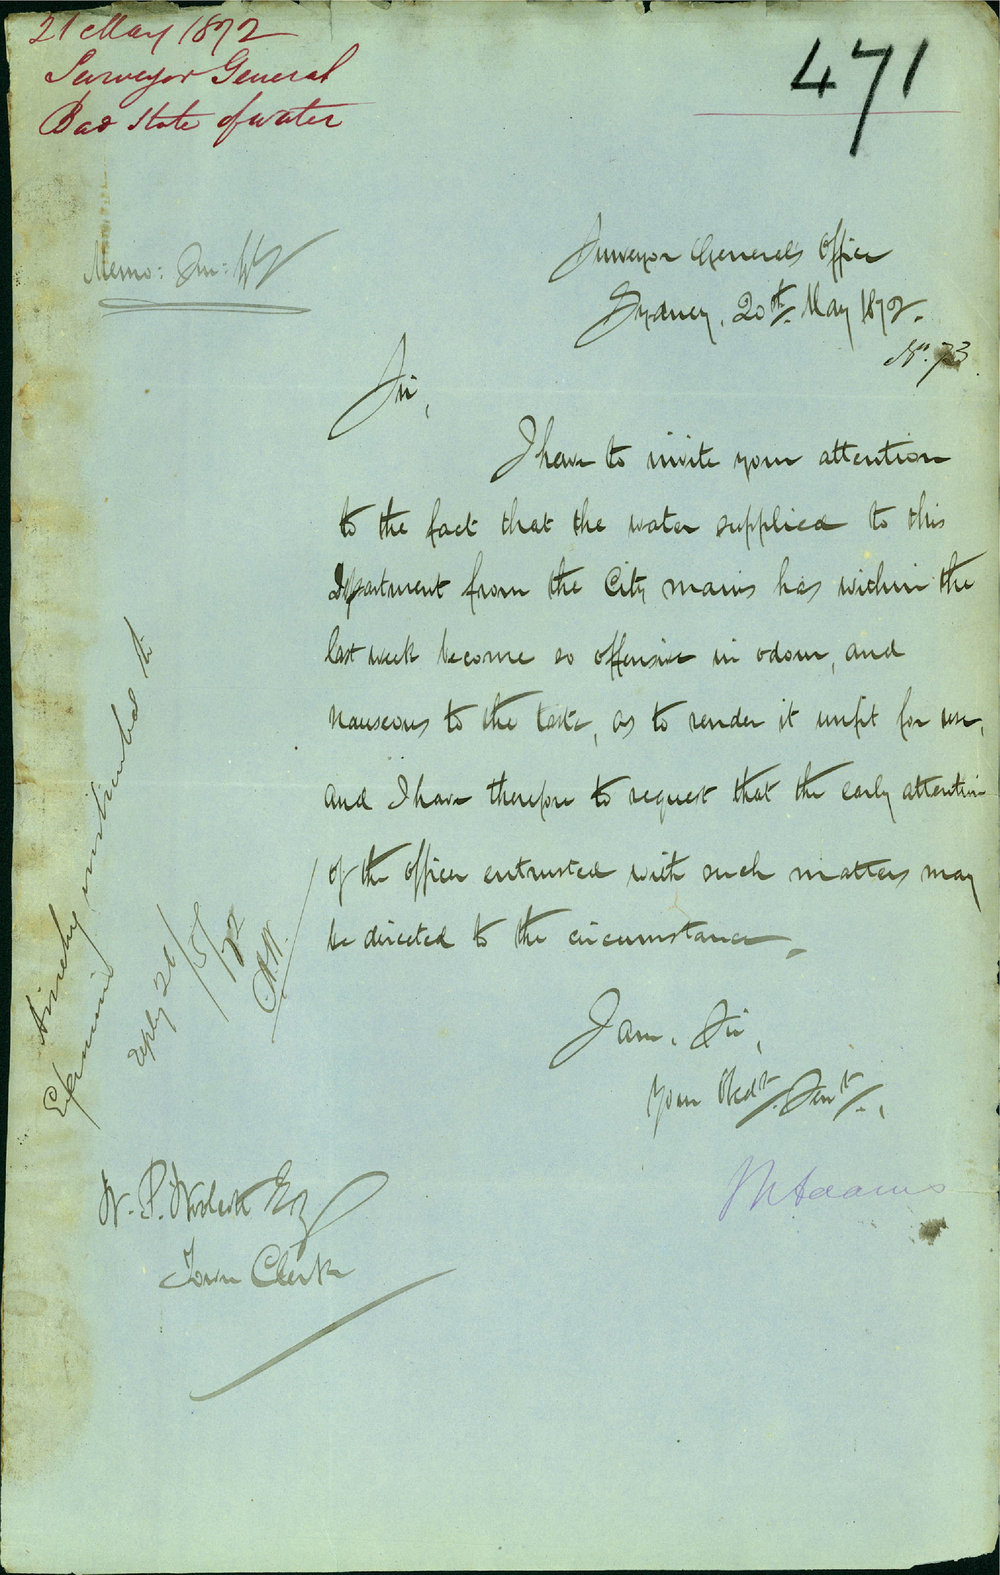 21 May 1872
Surveyor General
Bad State of water
471
Memo:
Surveyor General's Office
Sydney, 20th. May 1872.
No. 73.
Sir,
I have to invite your attention
to the fact that the water supplied to this
Department from the City mains has within the
last week become so offensive in odour, and
nauseous to the taste, as to render it unfit for use,
and I have therefore to request that the early attention
of the officer entrusted with such matters may
be directed to the circumstance,
I am, Sir,
Your Obedt. Servt.,
P F Adams
Reply 26/5/72
W. P. Woolcott Esq
Town Clerk